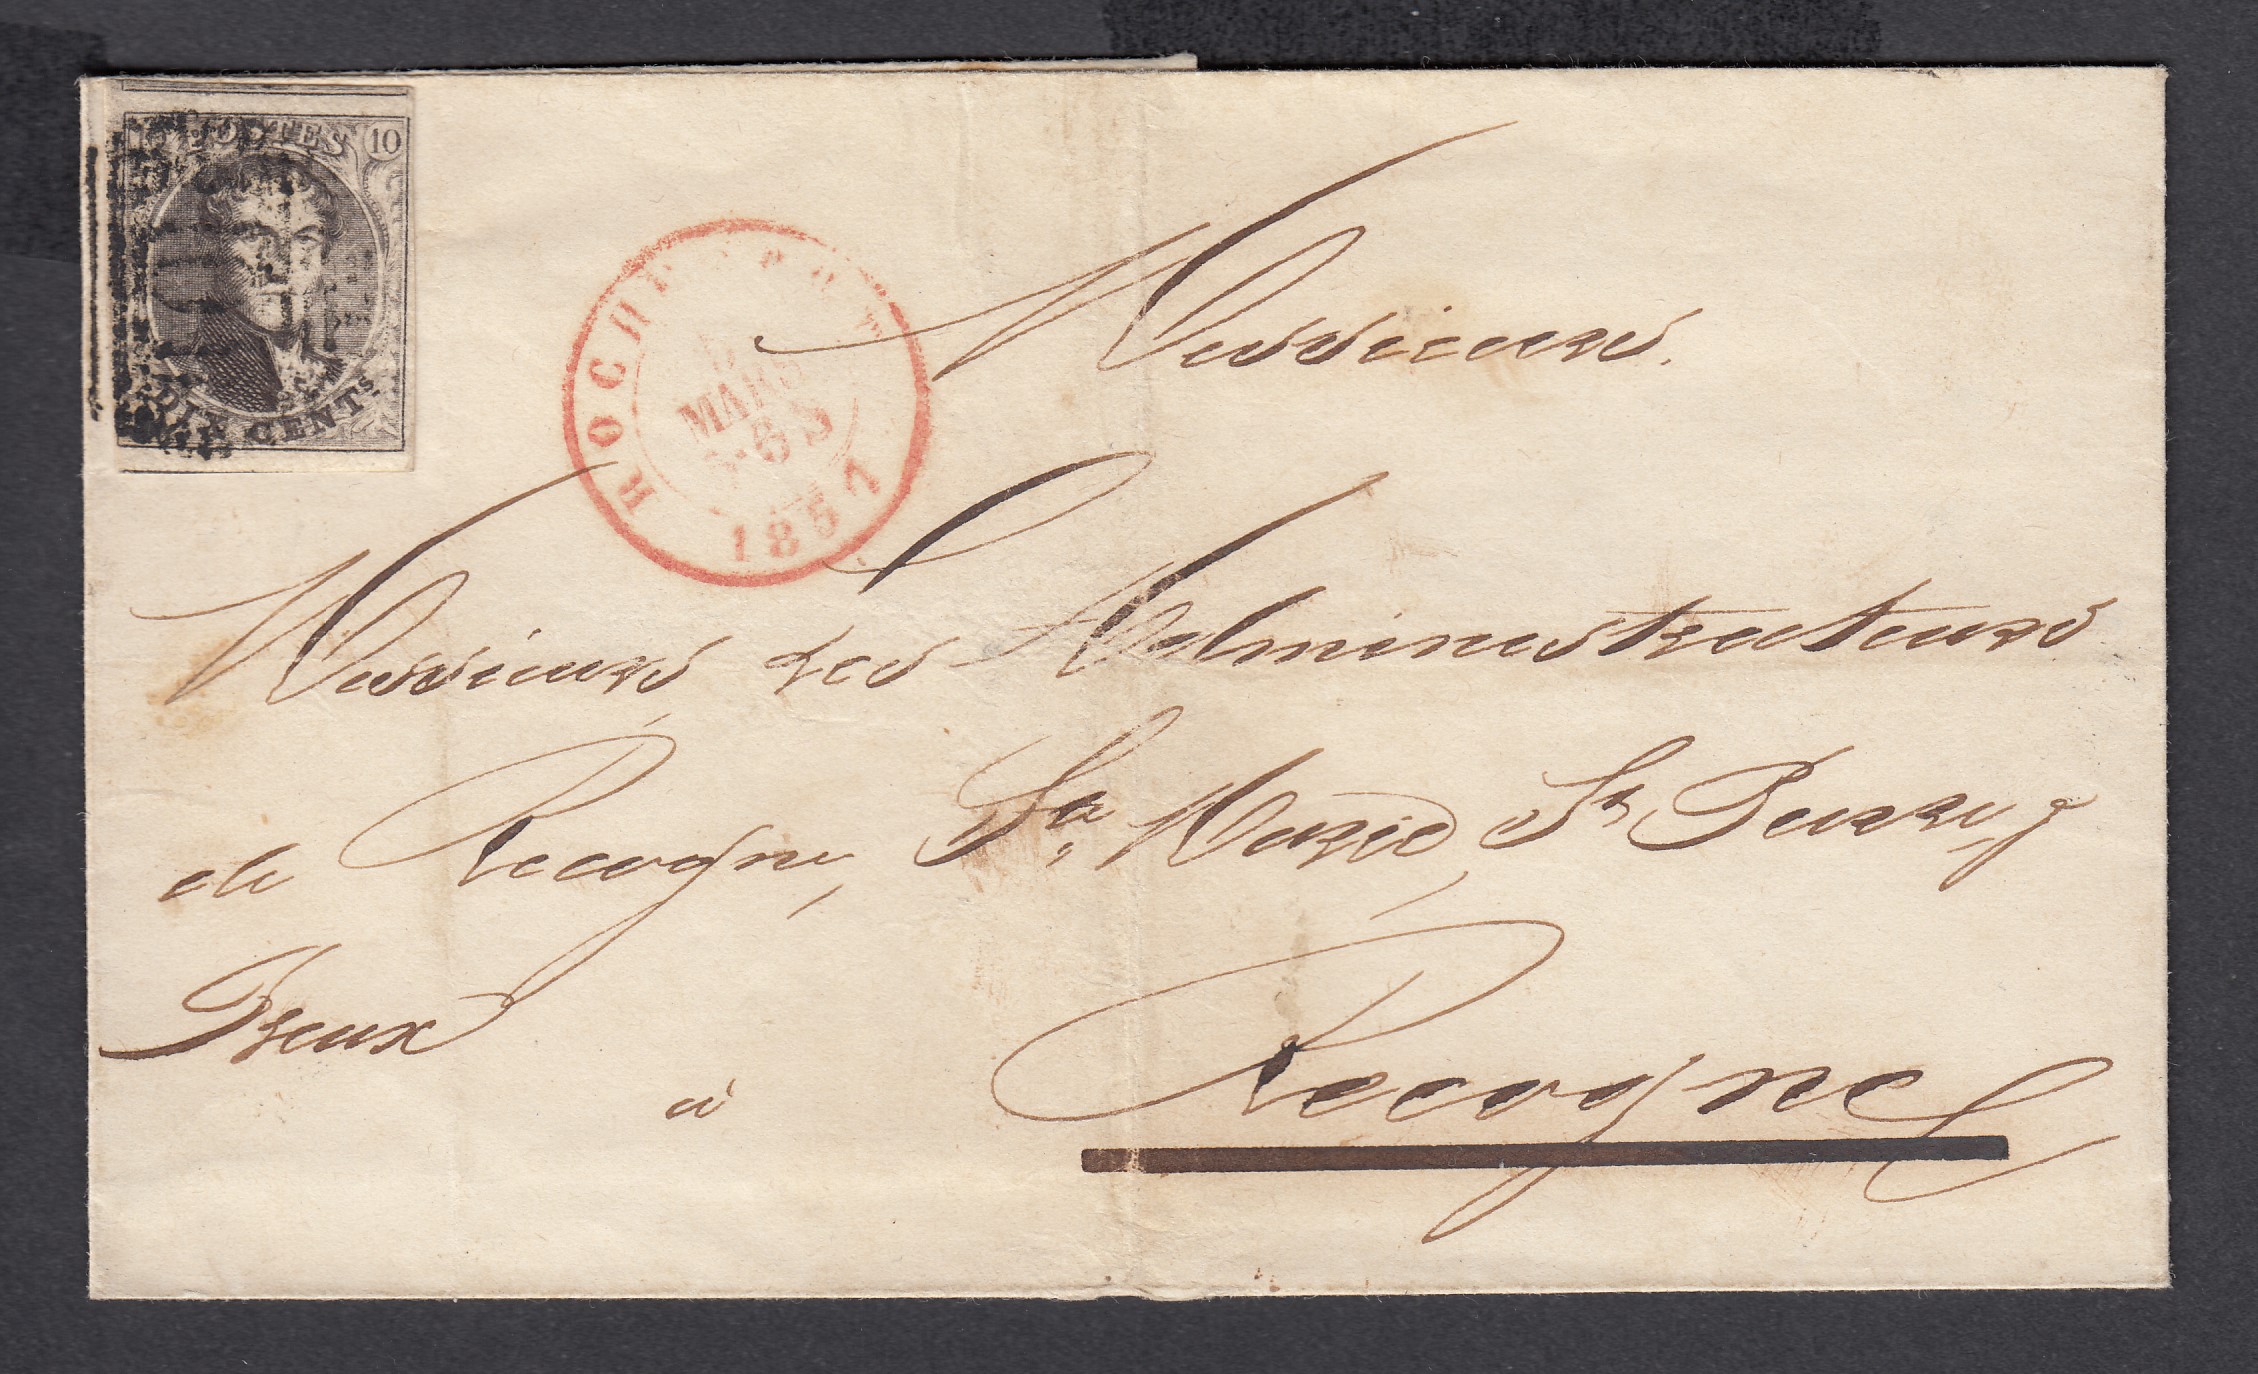 POSTES 10
DIX CENTS.
ROCHEFORT
MARS
6 S
1857
Messieurs
Messieurs les Administrateurs
de Recogne, Ste. Marie, St Pierre, &
Freux
à Recogne